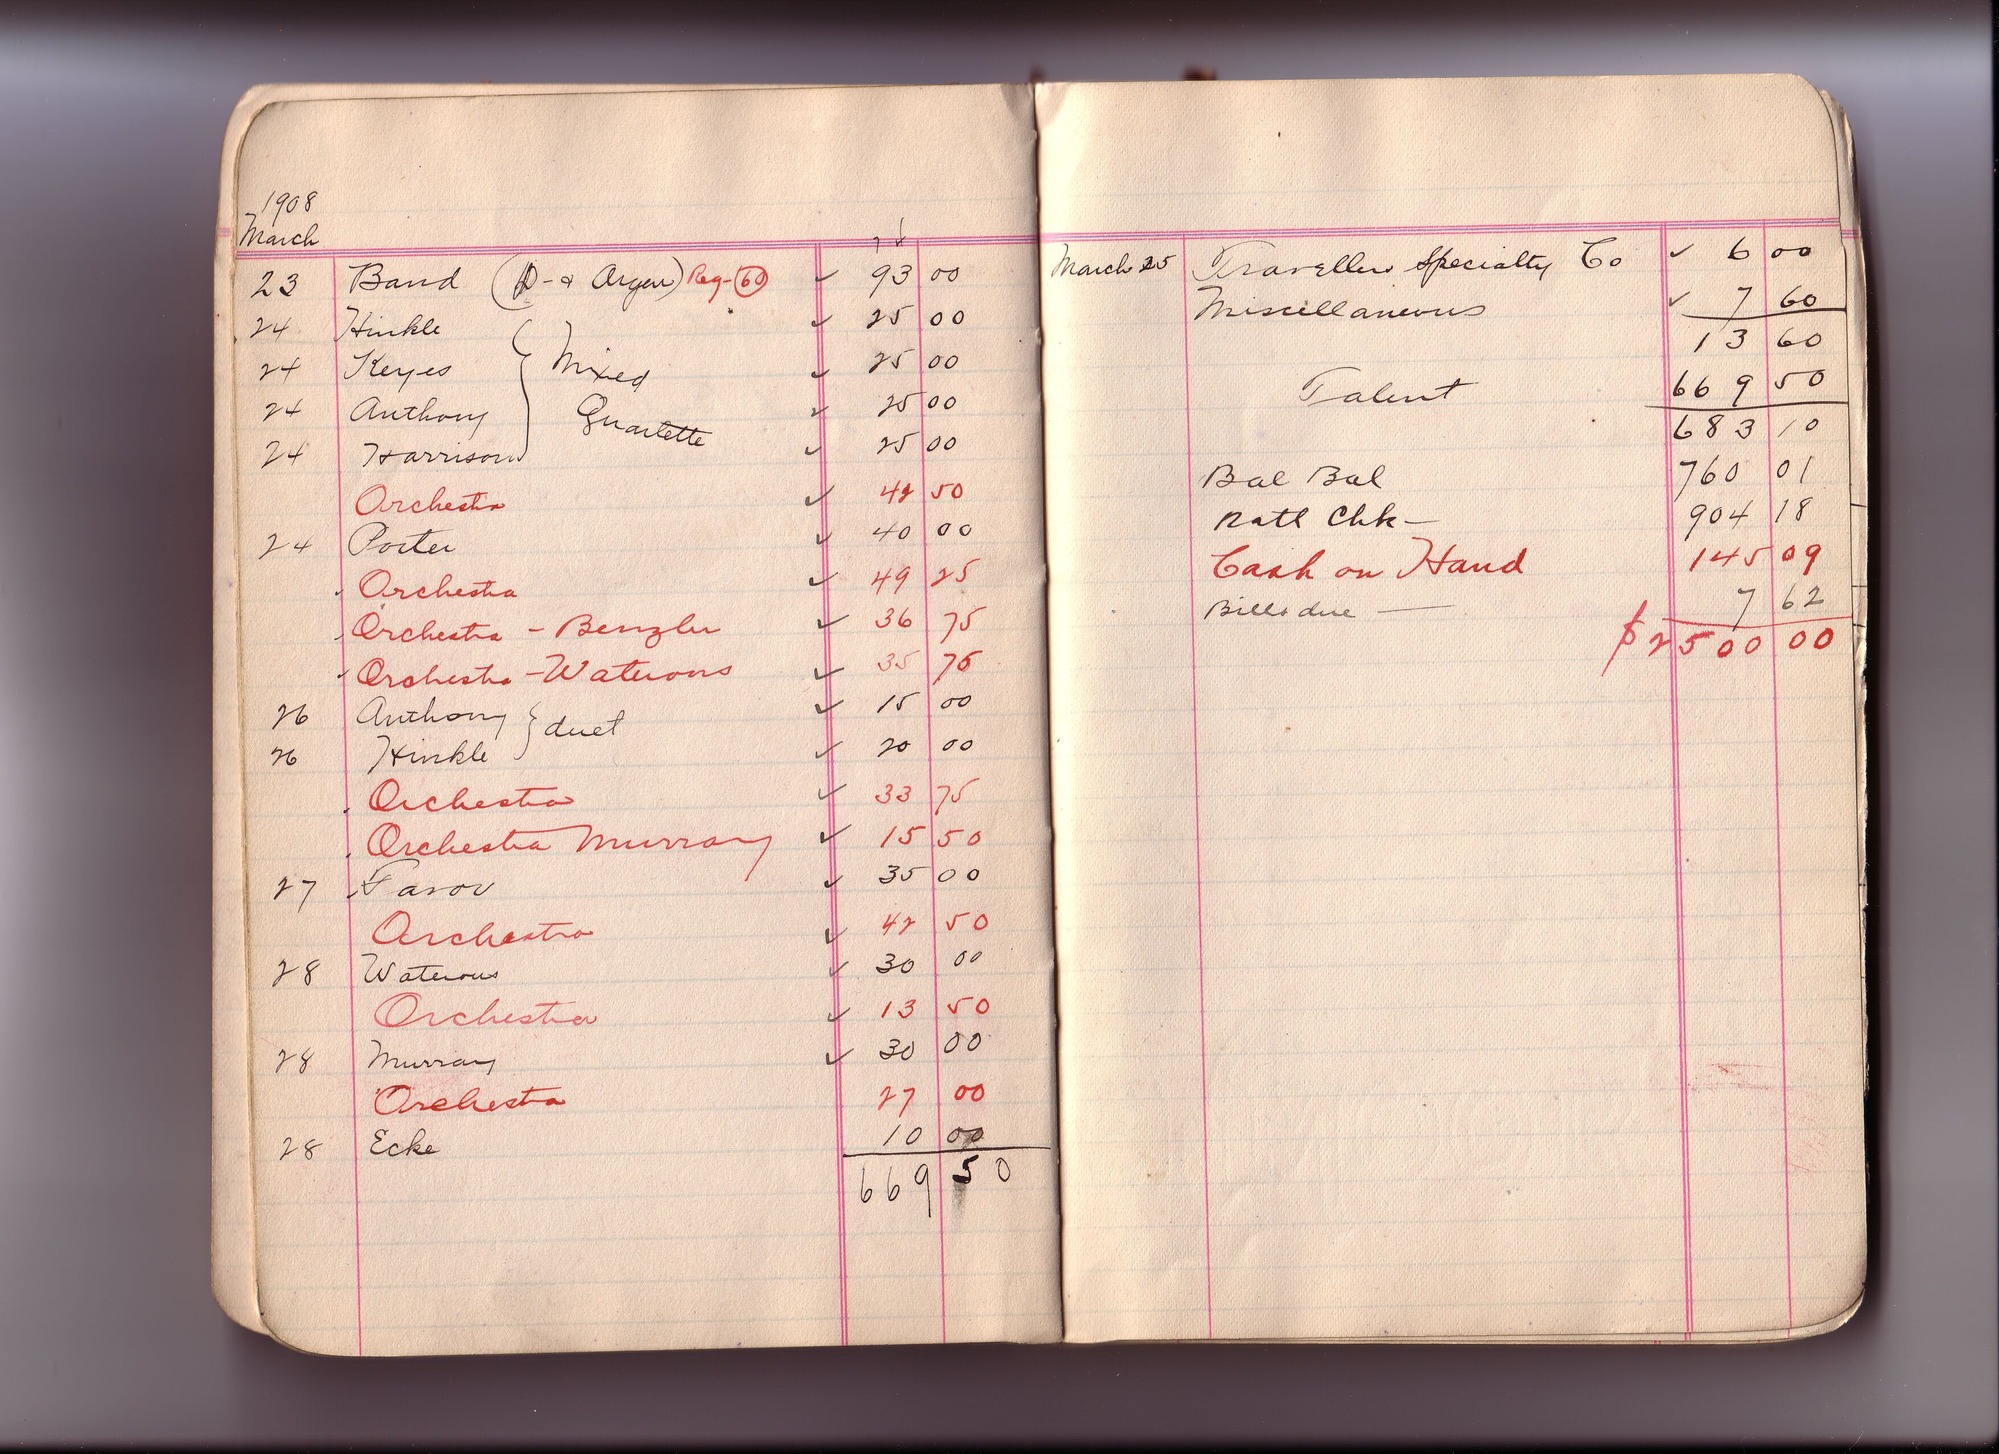 1908
March
23 Band (D-& Argen) Reg- 60 ✓ 93 00
24 Hinkle ✓ 25 00
24 Keyes Mixed ✓ 25 00
24 Anthony Quartette ✓ 25 00
24 Harrison ✓ 25 00
Orchestra ✓ 42 50
24 Porter ✓ 40 00
Orchestra ✓ 49 25
Orchestra - Benzler ✓ 36 75
Orchestra - Waterous ✓ 35 75
26 Anthony } duet ✓ 15 00
26 Hinkle ✓ 20 00
Orchestra ✓ 33 75
Orchestra Murray ✓ 15 50
27 ✓ 35 00
Orchestra ✓ 42 50
28 Waterous ✓ 30 00
Orchestra ✓ 13 50
28 Murray ✓ 30 00
Orchestra 27 00
28 Ecke 10 00
669 50
March 25 Travellers Specialty Co ✓ 6 00
Miscellaneous ✓ 7 60
13 60
Talent 669 50
683 10
Bal Bal 760 01
Natl Chk — 904 18
Cash on Hand 145 09
Bills due — 7 62
$2500 00